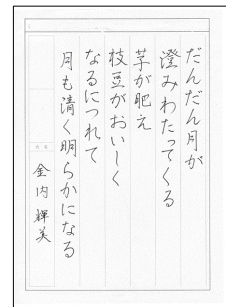 だんだん月が
澄みわたってくる
芋が肥え
枝豆がおいしく
なるにつれて
月も清く明らかになる
金内輝美